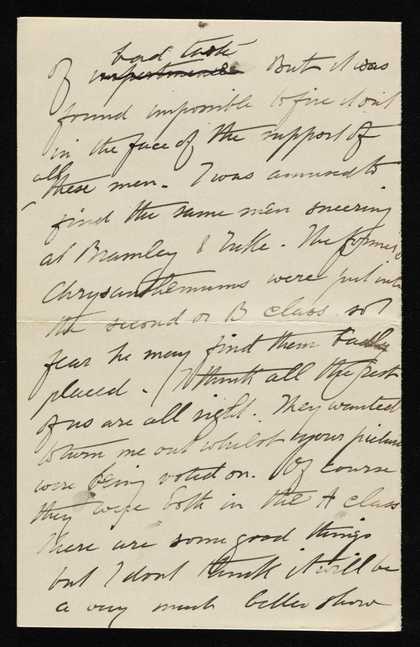 bad taste
of impertinence But it was
found impossible to fire it out
in the face of the support of
all
these men. I was amused to
find the same men sneering
at Bramley & Tuke. The former's
Chrysanthemums were put into
the second or B class so I
fear he may find them badly
placed. I think all the rest
of us are all right. They wanted
to turn me out whilst your picture
were being voted on. Of course
they were both in the A class
There are some good things
but I dont think it will be
a very much better show